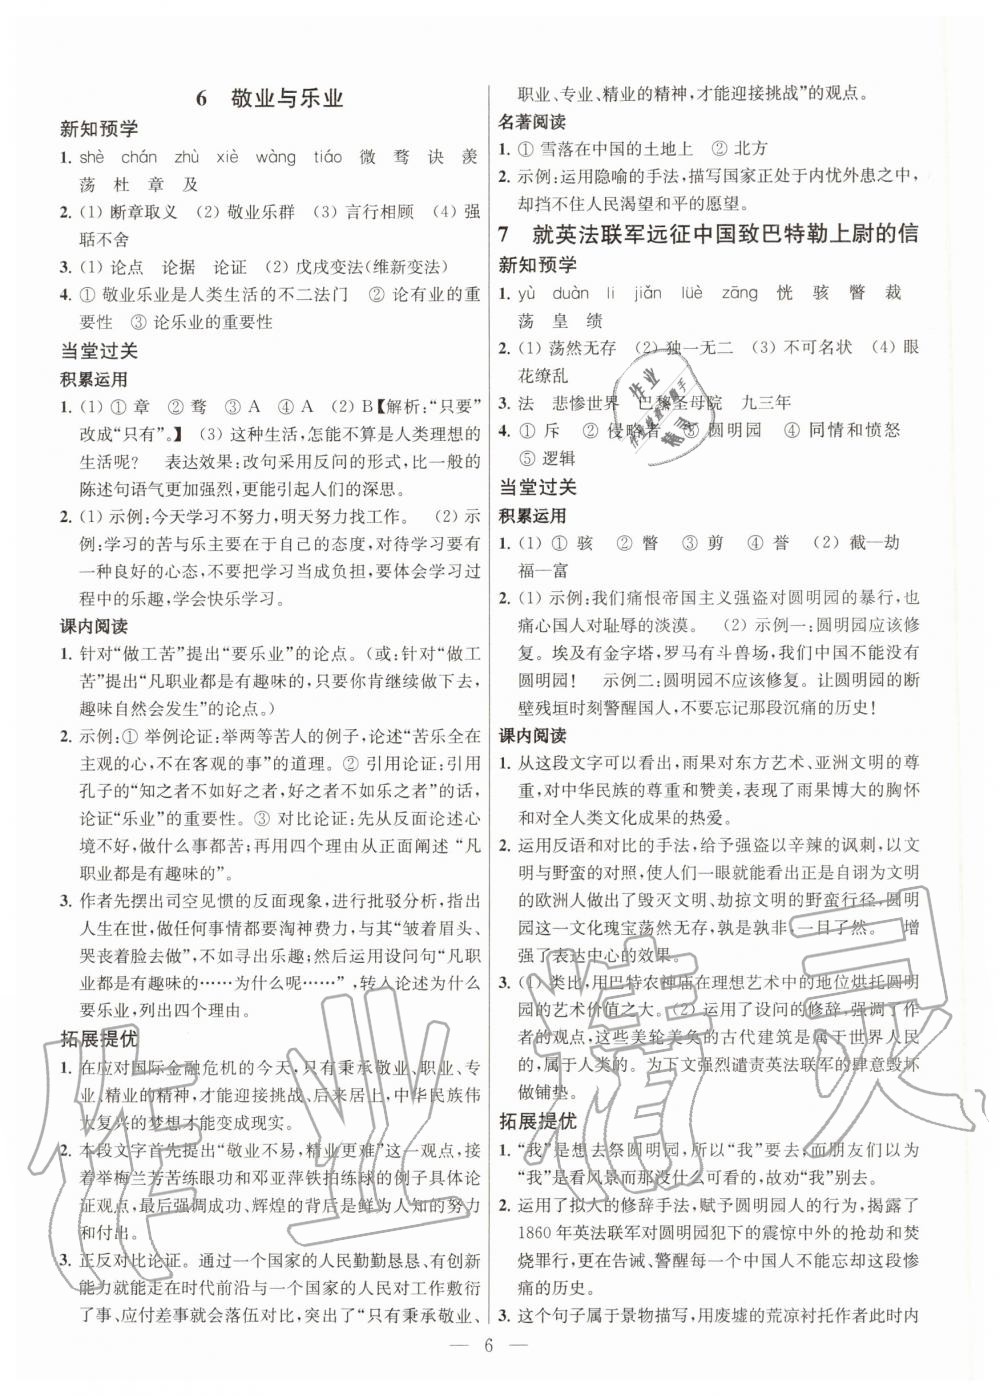 6　敬业与乐业
新知预学
1. shè　chán　zhù　xiè　wàng　tiáo　微　骛　诀　羡
荡　杜　章　及
2. (1) 断章取义　(2) 敬业乐群　(3) 言行相顾　(4) 强
聒不舍
3. (1) 论点　论据　论证　(2) 戊戌变法(维新变法)
4. ① 敬业乐业是人类生活的不二法门　② 论有业的重
要性　③ 论乐业的重要性
当堂过关
积累运用
1. (1) ① 章　② 骛　③ A　④ A　(2) B【解析:“只要”
改成“只有”。】　(3) 这种生活,怎能不算是人类理想的
生活呢?　表达效果:改句采用反问的形式,比一般的
陈述句语气更加强烈,更能引起人们的深思。
2. (1) 示例:今天学习不努力,明天努力找工作。　(2) 示
例:学习的苦与乐主要在于自己的态度,对待学习要有
一种良好的心态,不要把学习当成负担,要体会学习过
程中的乐趣,学会快乐学习。
课内阅读
1. 针对“做工苦”提出“要乐业”的论点。(或:针对“做工
苦”提出“凡职业都是有趣味的,只要你肯继续做下去,
趣味自然会发生”的论点。)
2. 示例:① 举例论证:举两等苦人的例子,论述“苦乐全在
主观的心,不在客观的事”的道理。② 引用论证:引用
孔子的“知之者不如好之者,好之者不如乐之者”的话,
论证“乐业”的重要性。③ 对比论证:先从反面论述心
境不好,做什么事都苦;再用四个理由从正面阐述“凡
职业都是有趣味的”。
3. 作者先摆出司空见惯的反面现象,进行批驳分析,指出
人生在世,做任何事情都要淘神费力,与其“皱着眉头、
哭丧着脸去做”,不如寻出乐趣;然后运用设问句“凡职
业都是有趣味的……为什么呢……”,转入论述为什么
要乐业,列出四个理由。
拓展提优
1. 在应对国际金融危机的今天,只有秉承敬业、职业、专
业、精业的精神,才能迎接挑战、后来居上,中华民族伟
大复兴的梦想才能变成现实。
2. 本段文字首先提出“敬业不易,精业更难”这一观点,接
着举梅兰芳苦练眼功和邓亚萍铁拍练球的例子具体论
证观点,最后强调成功、辉煌的背后是鲜为人知的努力
和付出。
3. 正反对比论证。通过一个国家的人民勤勤恳恳、有创新
能力就能走在时代前沿与一个国家的人民对工作敷衍
了事、应付差事就会落伍对比,突出了“只有秉承敬业、
职业、专业、精业的精神,才能迎接挑战”的观点。
名著阅读
1. ① 雪落在中国的土地上　② 北方
2. 示例:运用隐喻的手法,描写国家正处于内忧外患之中,
却挡不住人民渴望和平的愿望。
7　就英法联军远征中国致巴特勒上尉的信
新知预学
1. yù　duàn　li　jiǎn　lüè　zāng　恍　骇　瞥　裁
荡　皇　绩
2. (1) 荡然无存　(2) 独一无二　(3) 不可名状　(4) 眼
花缭乱
3. 法　悲惨世界　巴黎圣母院　九三年
4. ① 斥　② 侵略者　③ 圆明园　④ 同情和愤怒
⑤ 逻辑
当堂过关
积累运用
1. (1) ① 骇　② 瞥　③ 剪　④ 誉　(2) 截—劫
福—富
2. (1) 示例:我们痛恨帝国主义强盗对圆明园的暴行,也
痛心国人对耻辱的淡漠。　(2) 示例一:圆明园应该修
复。埃及有金字塔,罗马有斗兽场,我们中国不能没有
圆明园!　示例二:圆明园不应该修复。让圆明园的断
壁残垣时刻警醒国人,不要忘记那段沉痛的历史!
课内阅读
1. 从这段文字可以看出,雨果对东方艺术、亚洲文明的尊
重,对中华民族的尊重和赞美,表现了雨果博大的胸怀
和对全人类文化成果的热爱。
2. 运用反语和对比的手法,给予强盗以辛辣的讽刺,以文
明与野蛮的对照,使人们一眼就能看出正是自诩为文明
的欧洲人做出了毁灭文明、劫掠文明的野蛮行径,圆明
园这一文化瑰宝荡然无存,孰是孰非,一目了然。　增
强了表达中心的效果。
3. (1) 类比,用巴特农神庙在理想艺术中的地位烘托圆明
园的艺术价值之大。(2) 运用了设问的修辞,强调了作
者的观点,这些美轮美奂的古代建筑是属于世界人民
的,属于人类的。为下文强烈谴责英法联军的肆意毁坏
做铺垫。
拓展提优
1. “我”是想去祭圆明园,所以“我”要去;而朋友们以为
“我”是看风景而那里没什么可看的,故劝“我”别去。
2. 运用了拟人的修辞手法,赋予圆明园人的行为,揭露了
1860年英法联军对圆明园犯下的震惊中外的抢劫和焚
烧罪行,更在告诫、警醒每一个中国人不能忘却这段惨
痛的历史。
3. 这个句子属于景物描写,用废墟的荒凉衬托作者此时内
— 6 —
作业精灵